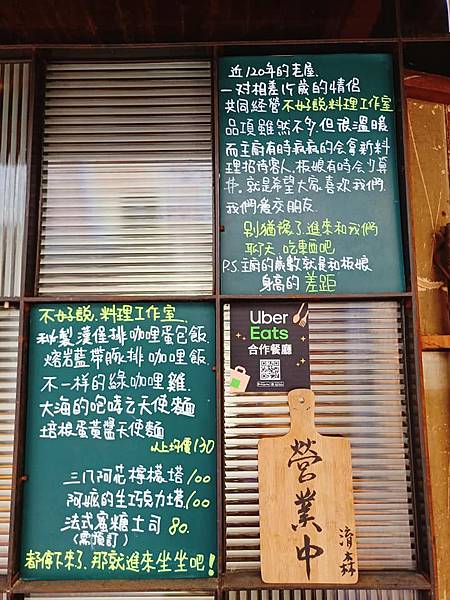 近120年的老屋.
一对相差15歲的情侶
共同經營不好說料理工作室
品項雖然不多.但很溫暖
而主廚有時瘋瘋的會拿新料
理招待客人,板娘有時會少算
錢。就是希望大家喜欢我們.
我們愛交朋友.
別猶豫了.進來和我們
聊天 吃東西吧
P.S.主廚的歲數就是和板娘
身高的 差距
不好說.料理工作室.
秘製漢堡排咖哩蛋包飯
熔岩藍帶豚排咖哩飯.
不一樣的綠咖哩雞.
大海的咆哮之天使麵
培根蛋黃醬天使麵
以上均價130
三八阿花檸檬塔100
阿嬤的生巧克力塔100
法式蜜糖土司 80.
(需預訂)
都停下來了.那就進來坐坐吧!
Uber
Eats
合作餐廳
營業中